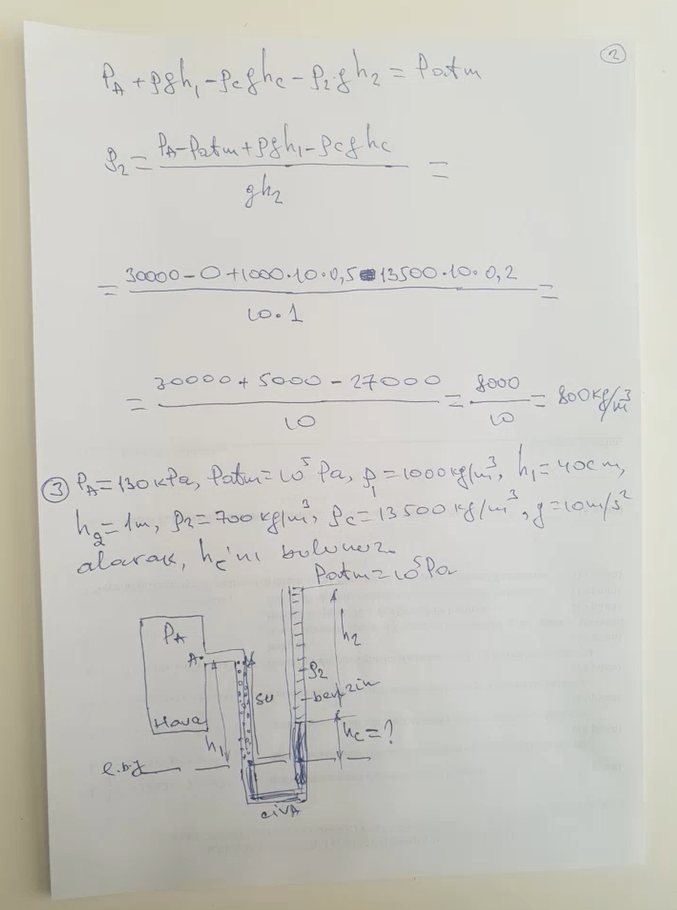 2
PA + ρgh1 - ρcghc - ρ2gh2 = Patm
ρ2 = (PA - Patm + ρgh1 - ρcghc) / gh2 =
= (30000 - 0 + 1000·10·0,5 - 13500·10·0,2) / 10·1 =
= (30000 + 5000 - 27000) / 10 = 8000 / 10 = 800 kg/m³
3 PA = 130 kPa, Patm = 10⁵ Pa, ρ1 = 1000 kg/m³, h1 = 40cm,
h2 = 1m, ρ2 = 700 kg/m³, ρc = 13500 kg/m³, g = 10m/s²
alarak, hc'ni bulunuz.
Patm = 10⁵ Pa
PA
h2
A
ρ2
su
benzin
Hava
h1
hc = ?
e.b.y
civA